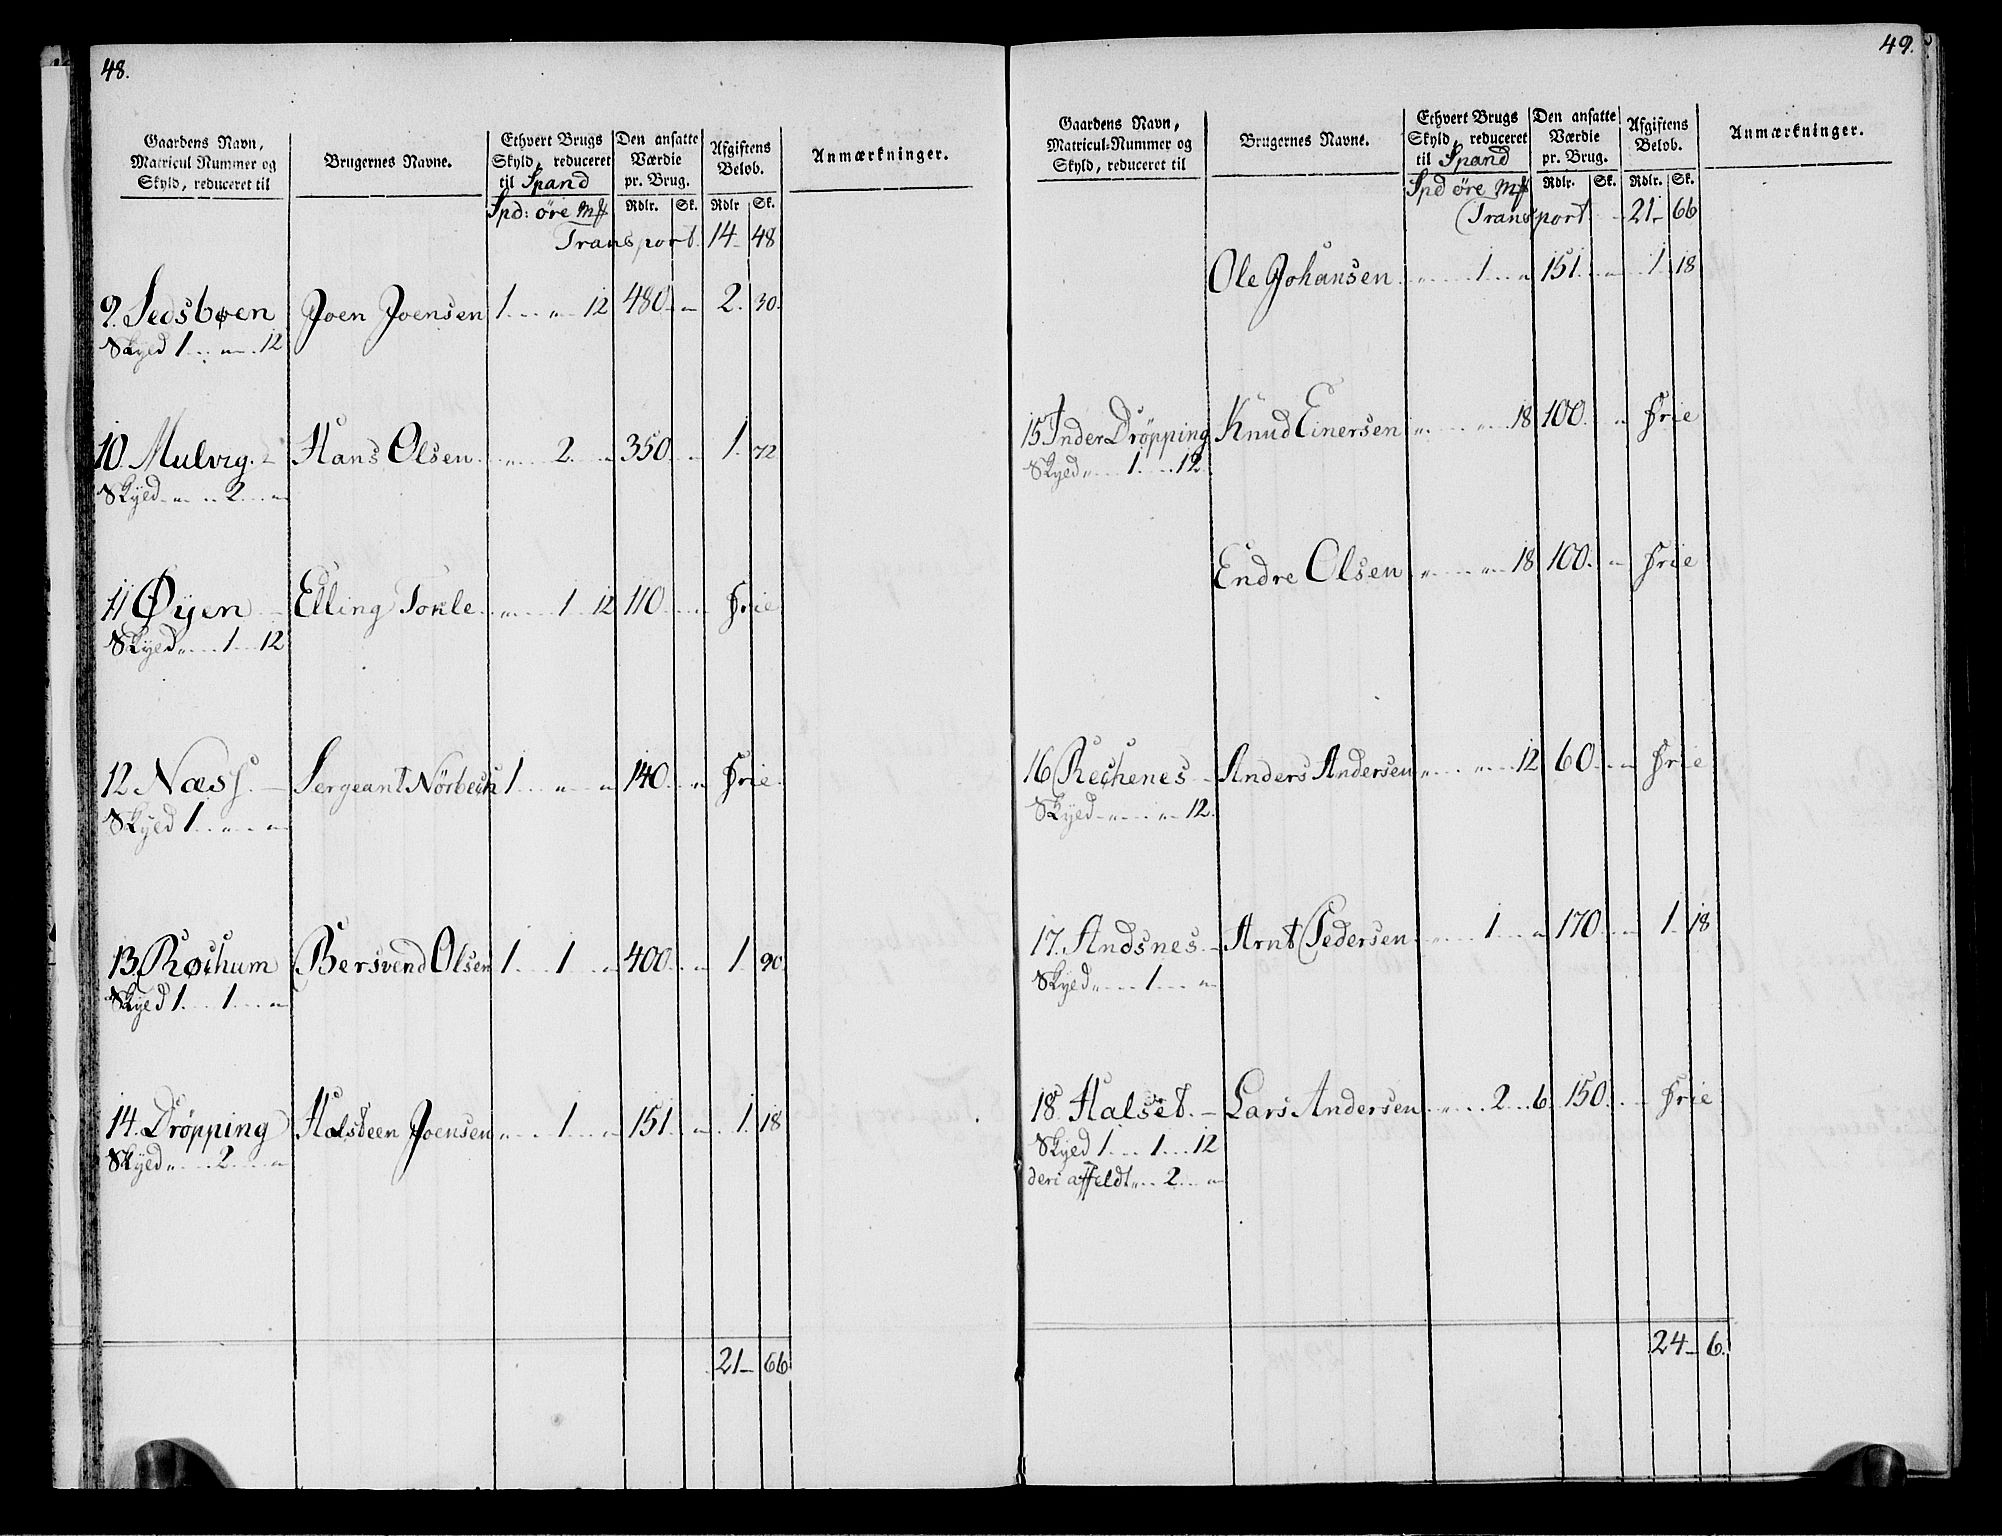 48.
Gaardens Navn, Matricul Nummer og Skyld, reduceret til
Brugernes Navne.
Ethvert Brugs Skyld, reduceret til Spand
Den ansatte Værdie pr. Brug.
Afgiftens Beløb.
Anmærkninger.
Spd: öre Mk Rdlr. Sk. Rdlr Sk.
Transport. 14 48
9. Sedsbøen Joen Joensen 1 " 12 480 " 2. 30.
Skyed 1 " 12
10. Mulvig. Hans Olsen " 2. " 350 " 1. 72
Skyed " 2 "
11 Øyen Elling Tonle " 1 12 110 " Frie
Skyed " 1 12
12 Næss. Sergeant Nörbech 1 " " 140 " Frie
Skyed 1 " "
13. Røchum Bersvend Olsen 1 1 " 400 " 1. 90.
Skyed 1 1 "
14. Dröpping Halsteen Joensen " 1 " 151 " 1. 18
Skyed " 2 "
21 66
49.
Gaardens Navn, Matricul-Nummer og Skyld, reduceret til
Brugernes Navne.
Ethvert Brugs Skyld, reduceret til Spand
Den ansatte Værdie pr. Brug.
Afgiftens Beløb.
Anmærkninger.
Spd öre Mk Rdlr. Sk. Rdlr. Sk.
Transport 21 66
Ole Johansen " 1 " 151. " 1 18
15. Inder Dröpping Knud Einersen " " 18 100. " Frie
Skyed " 1 12
Endre Olsen " " 18 100. " Frie
16 Rechenes Anders Andersen " " 12 60 " Frie
Skyed " " 12.
17. Andsnes Arnt Pedersen " 1 " 170 " 1 18
Skyed " 1 "
18. Halset. Lars Andersen " 2 6 150 " Frie
Skyed 1 1 12
deri affeldt " 2 "
24 6.